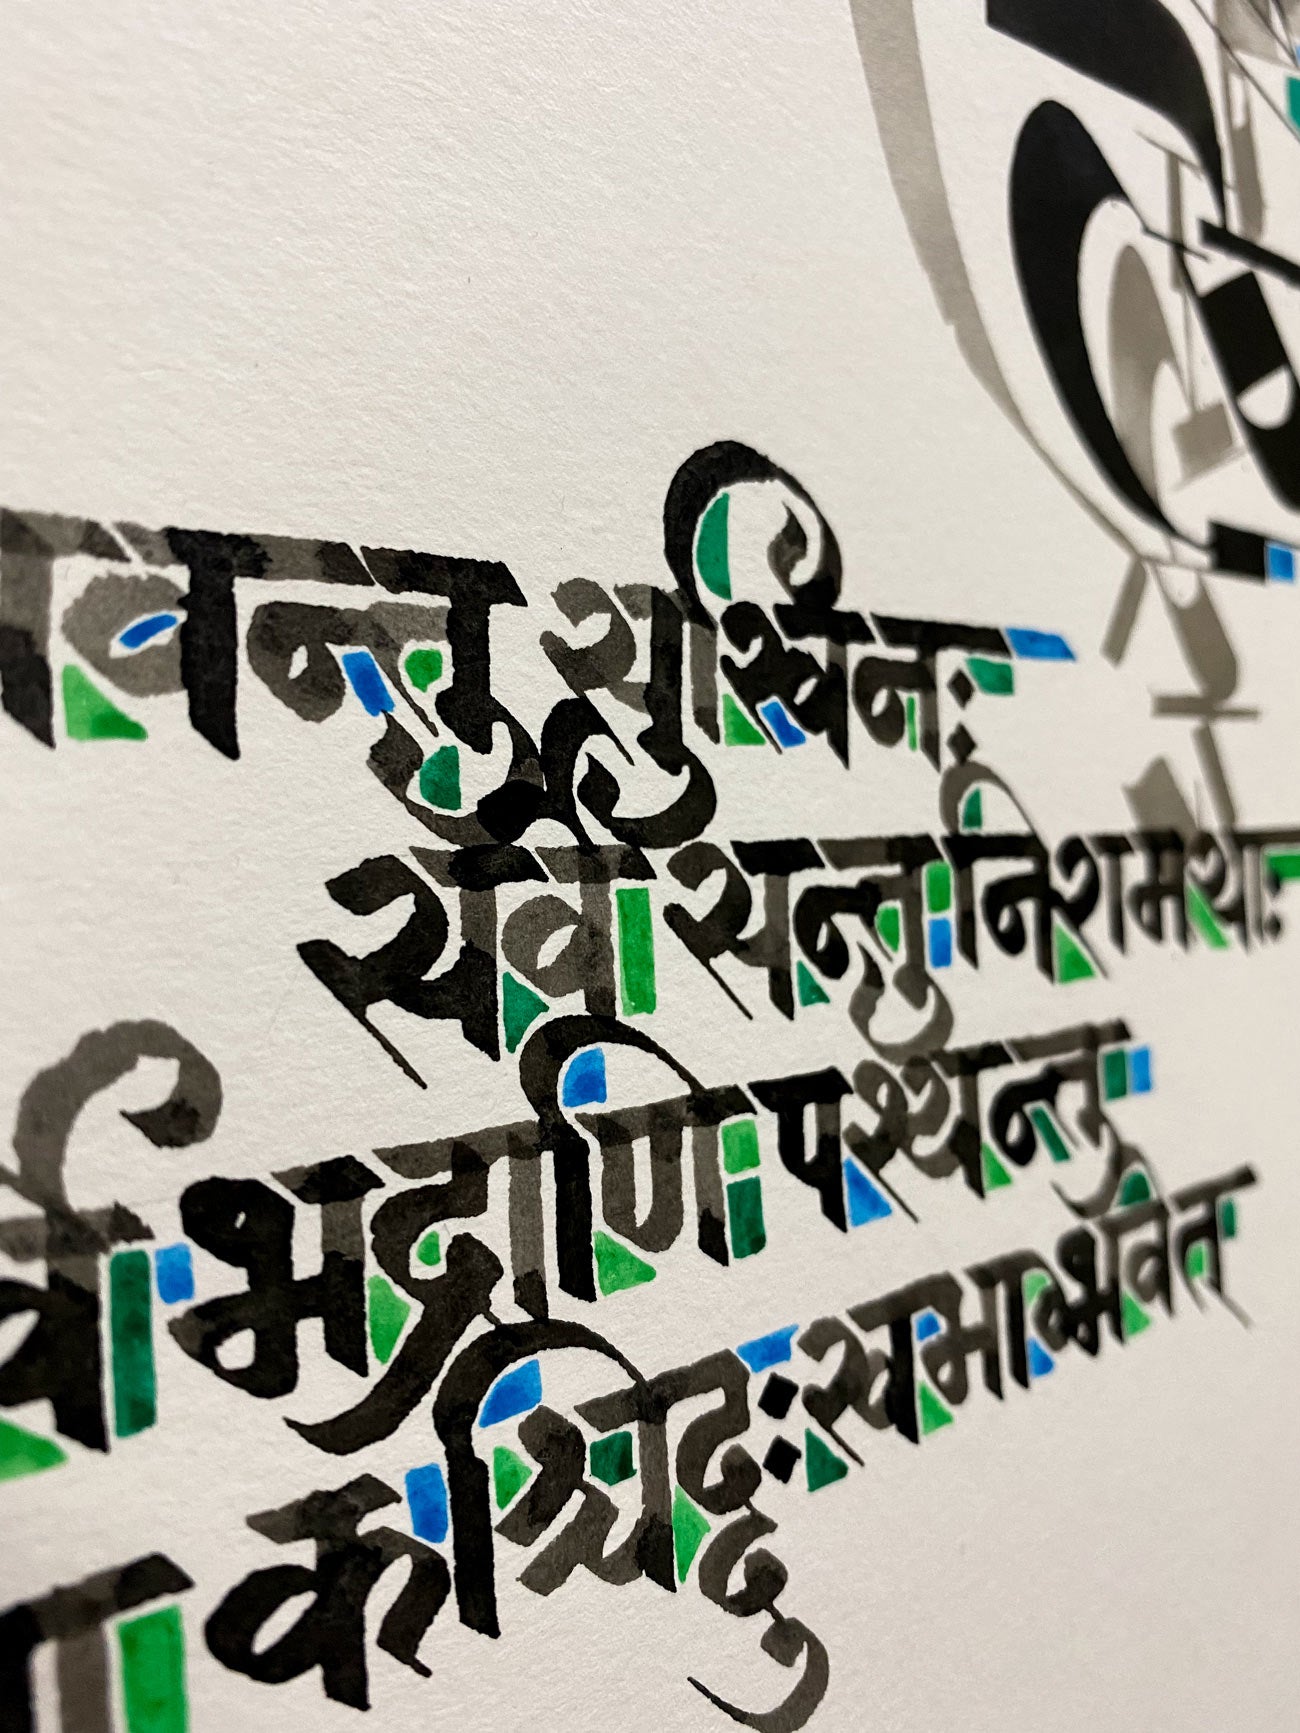 वन्तु सुखिनः
सर्वे सन्तु निरामयाः
र्वे भद्राणि पश्यन्तु
कश्चिद्दुःखभाग्भवेत